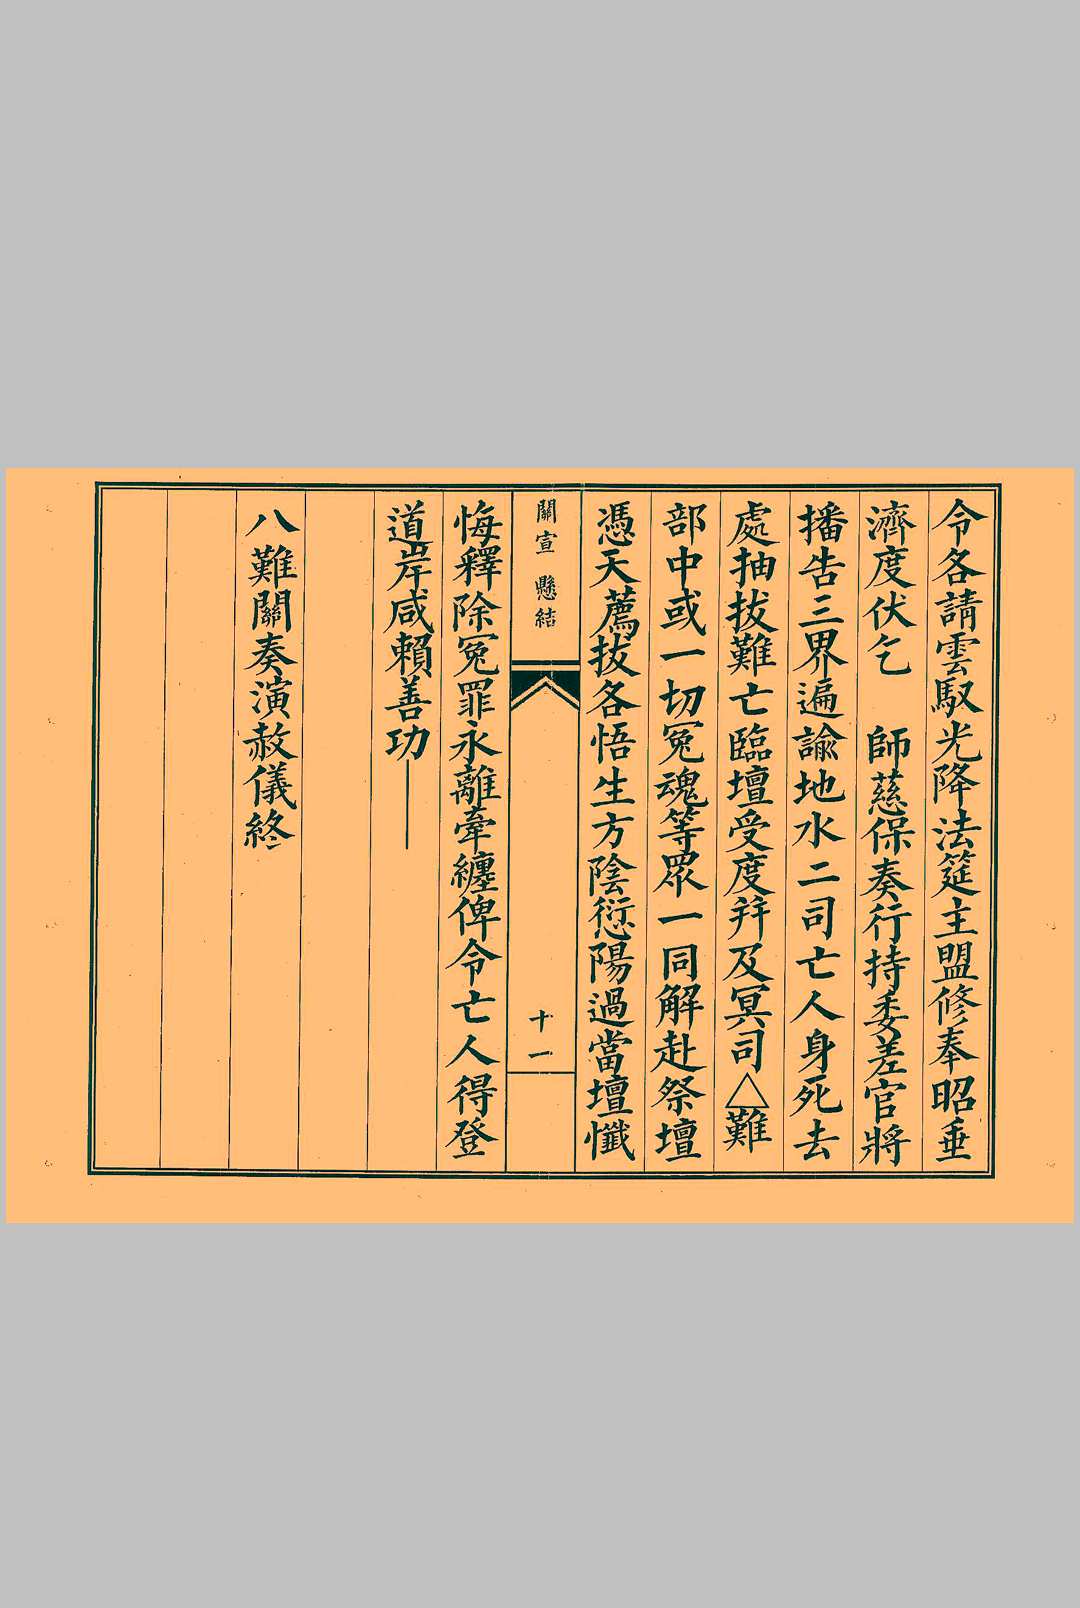 令各請雲馭光降法筵主盟修奉昭垂
濟度伏乞　師慈保奏行持委差官將
播告三界遍諭地水二司亡人身死去
處抽拔難亡臨壇受度并及冥司△難
部中或一切冤魂等眾一同解赴祭壇
憑天薦拔各悟生方陰愆陽過當壇懺
關宣　懸結
十一
悔釋除冤罪永離牽纏俾令亡人得登
道岸咸賴善功——
八難關奏演赦儀終